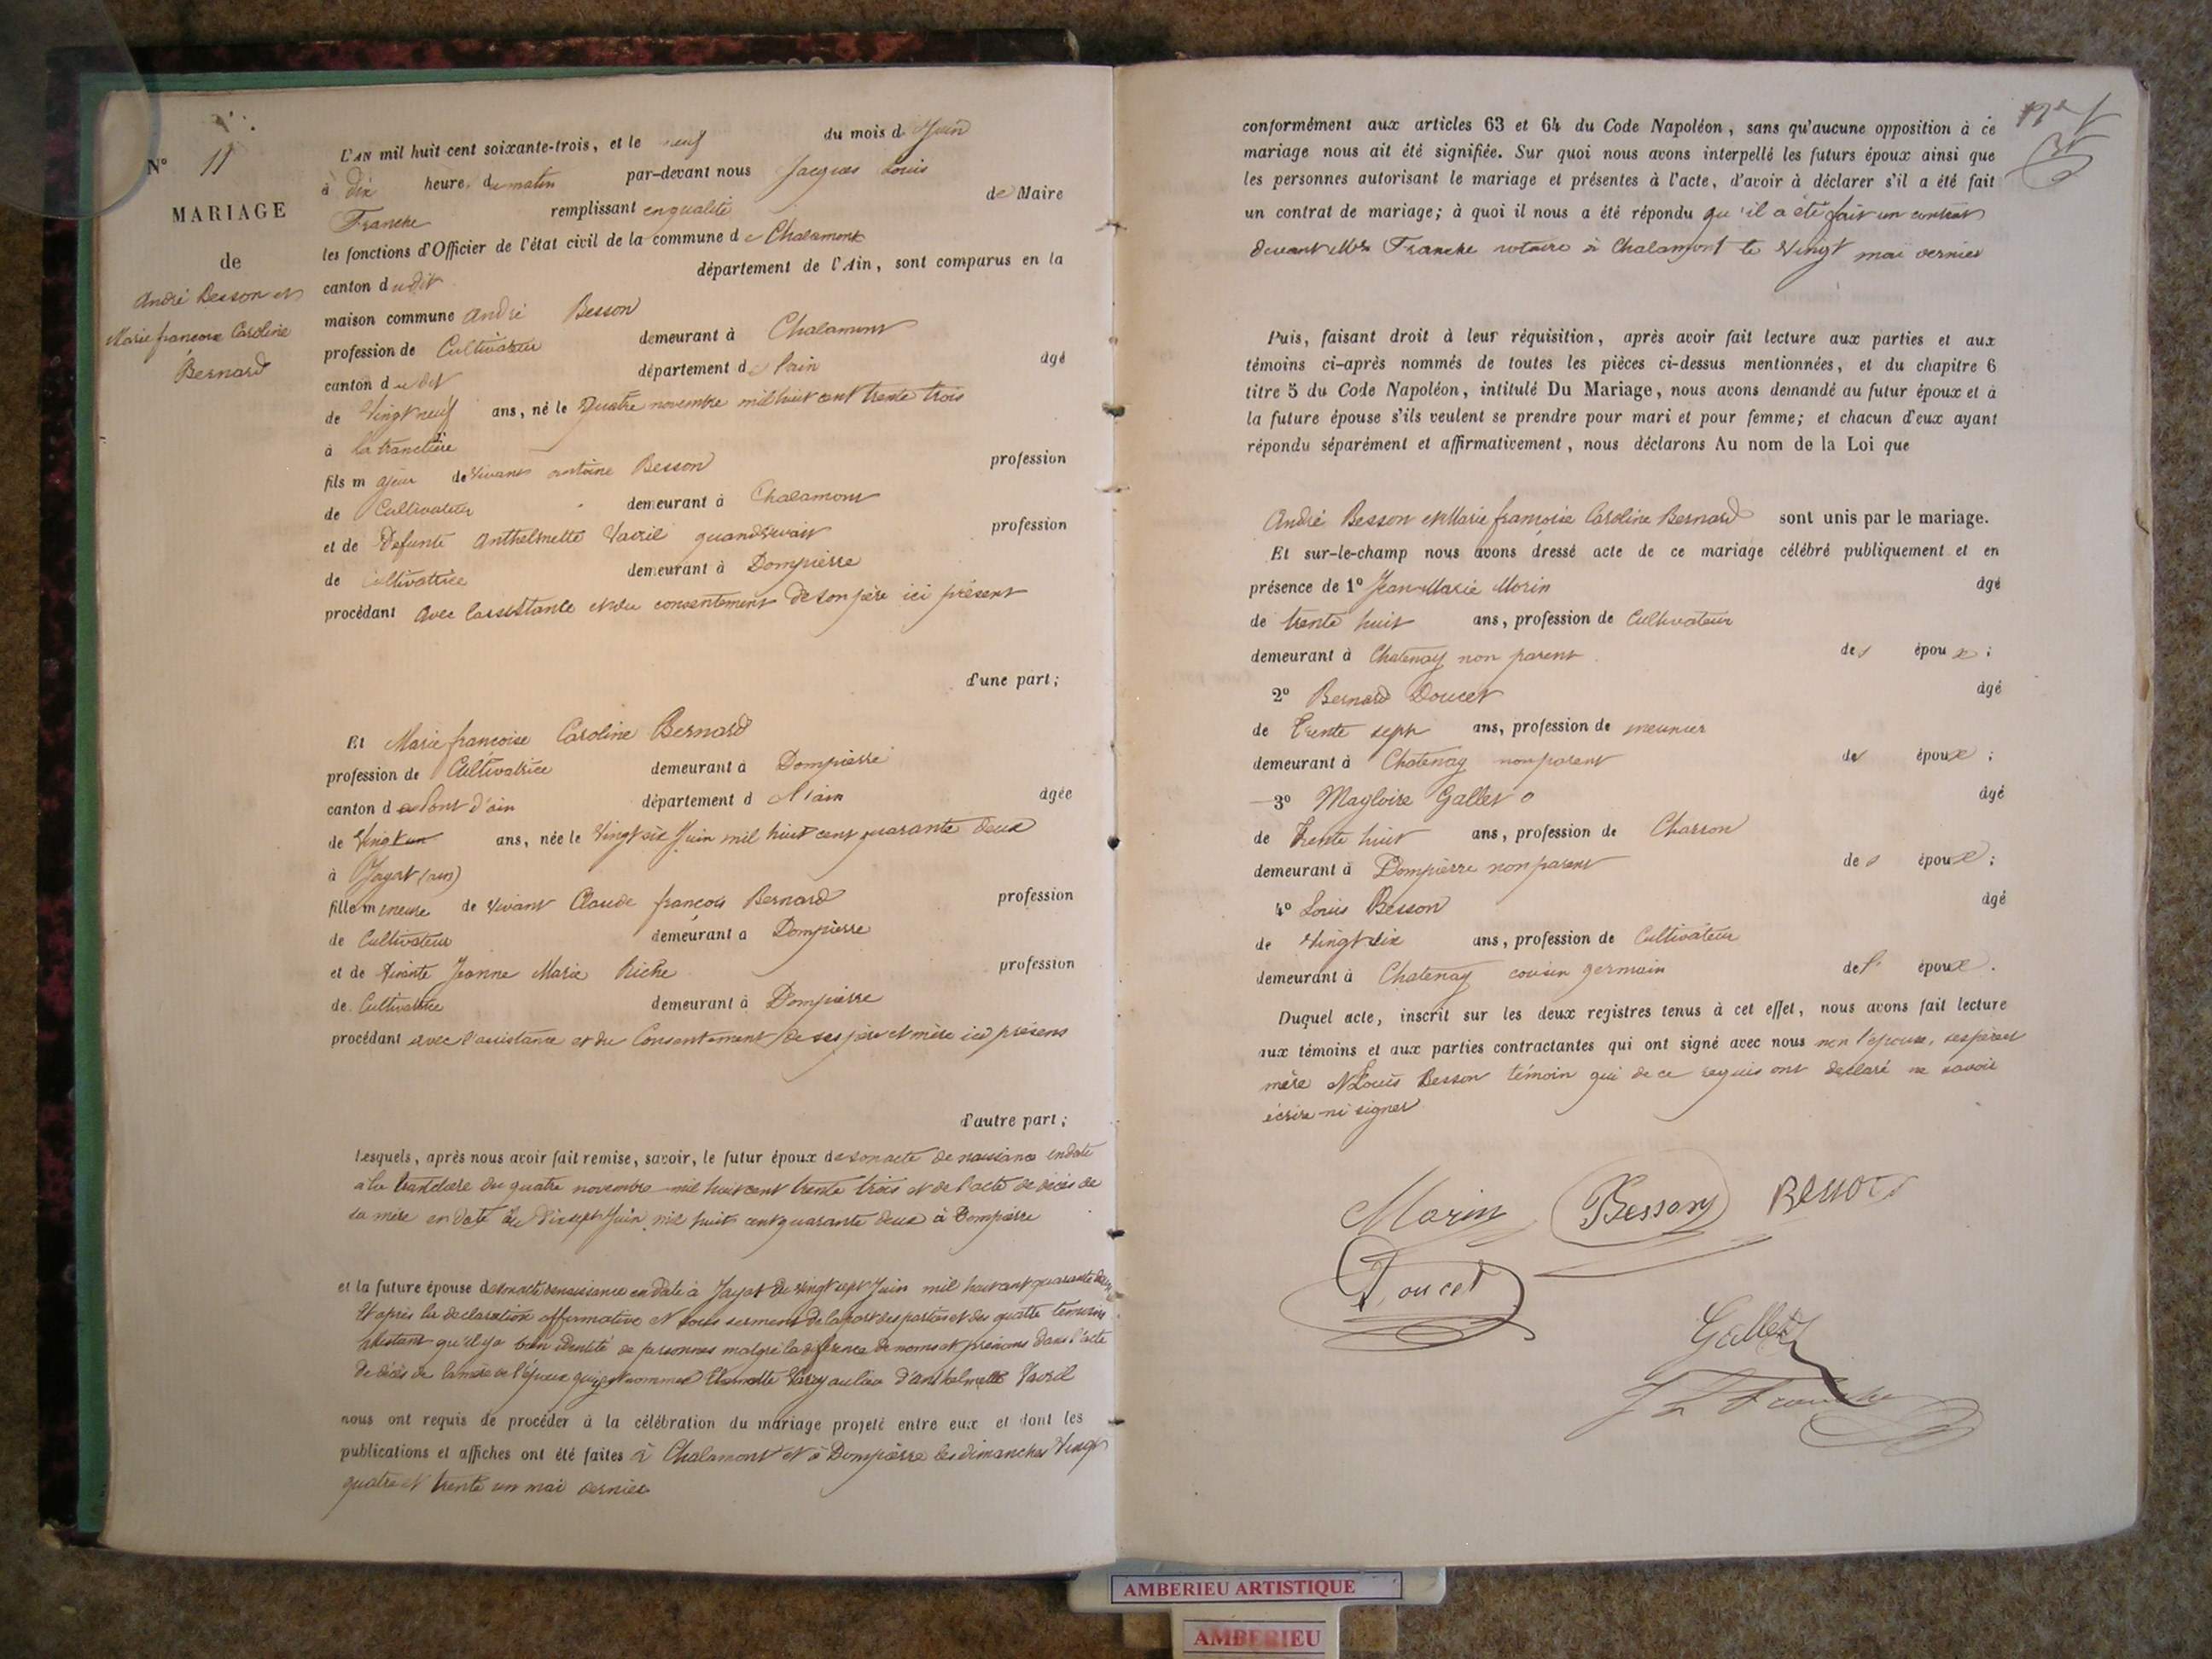 N° 11
MARIAGE
de
André Besson et
Marie françoise Caroline
Bernard
L'AN mil huit cent soixante-trois, et le neuf du mois de Juin
à dix heure, du matin par-devant nous Jacques Louis
Franche remplissant en qualité de Maire
les fonctions d'Officier de l'état civil de la commune de Chalamont
canton dudit département de l'Ain, sont comparus en la
maison commune André Besson
profession de Cultivateur demeurant à Chalamont
canton dudit département de l'ain âgé
de Vingt neuf ans, né le Quatre novembre mil huit cent trente trois
à la tranclière
fils majeur de vivant antoine Besson profession
de Cultivateur demeurant à Chalamont
et de Défunte Anthelmette Vavril quand vivait profession
de Cultivatrice demeurant à Dompierre
procédant avec l'assistance et du consentement de son père ici présent
d'une part;
Et Marie françoise Caroline Bernard
profession de Cultivatrice demeurant à Dompierre
canton de Pont d'ain département d l'ain âgée
de Vingt ans, née le Vingt six Juin mil huit cent quarante deux
à Jayat (ain)
fille mineure de vivant Claude françois Bernard profession
de Cultivateur demeurant à Dompierre
et de vivante Jeanne Marie Riche profession
de Cultivatrice demeurant à Dompierre
procédant avec l'assistance et du Consentement de ses père et mère ici présens
d'autre part;
Lesquels, après nous avoir fait remise, savoir, le futur époux de son acte de naissance en date
à la tranclière du quatre novembre mil huit cent trente trois et de l'acte de décès de
sa mère en date du Dix sept Juin mil huit cent quarante deux à Dompierre
et la future épouse de son acte de naissance en date à Jayat du vingt sept Juin mil huit cent quarante deux
Et après la déclaration affirmative et sous serment de la part des parties et des quatre témoins
attestant qu'il y a bien identité de personnes malgré la différence de noms et prénoms dans l'acte
de décès de la mère de l'époux qui y est nommée au lieu d'anthelmette Vavril
nous ont requis de procéder à la célébration du mariage projeté entre eux et dont les
publications et affiches ont été faites à Chalamont et à Dompierre les dimanches Vingt
quatre et trente un mai dernier
conformément aux articles 63 et 64 du Code Napoléon, sans qu'aucune opposition à ce
mariage nous ait été signifiée. Sur quoi nous avons interpellé les futurs époux ainsi que
les personnes autorisant le mariage et présentes à l'acte, d'avoir à déclarer s'il a été fait
un contrat de mariage; à quoi il nous a été répondu qu'il a été fait un contrat
devant Me Franche notaire à Chalamont le Vingt mai dernier
Puis, faisant droit à leur réquisition, après avoir fait lecture aux parties et aux
témoins ci-après nommés de toutes les pièces ci-dessus mentionnées, et du chapitre 6
titre 5 du Code Napoléon, intitulé Du Mariage, nous avons demandé au futur époux et à
la future épouse s'ils veulent se prendre pour mari et pour femme; et chacun d'eux ayant
répondu séparément et affirmativement, nous déclarons Au nom de la Loi que
André Besson et Marie françoise Caroline Bernard sont unis par le mariage.
Et sur-le-champ nous avons dressé acte de ce mariage célébré publiquement et en
présence de 1° Jean Marie Morin âgé
de trente huit ans, profession de Cultivateur
demeurant à Chatenay non parent des époux;
2° Bernard Doucet âgé
de Trente sept ans, profession de meunier
demeurant à Chatenay non parent des époux;
3° Magloire Gallet âgé
de Trente huit ans, profession de Charron
demeurant à Dompierre non parent des époux;
4° Louis Besson âgé
de Vingt six ans, profession de Cultivateur
demeurant à Chatenay cousin germain de l' époux.
Duquel acte, inscrit sur les deux registres tenus à cet effet, nous avons fait lecture
aux témoins et aux parties contractantes qui ont signé avec nous non l'épouse, ses père et
mère et Louis Besson témoin qui de ce requis ont déclaré ne savoir
écrire ni signer
Morin Besson Besson
Doucet
Gallet
J L Franche
AMBERIEU ARTISTIQUE
AMBERIEU